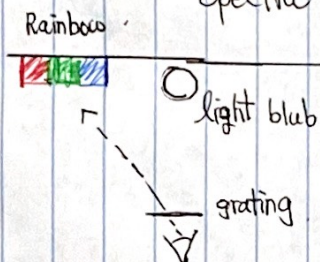 Rainbow
light blub
grating